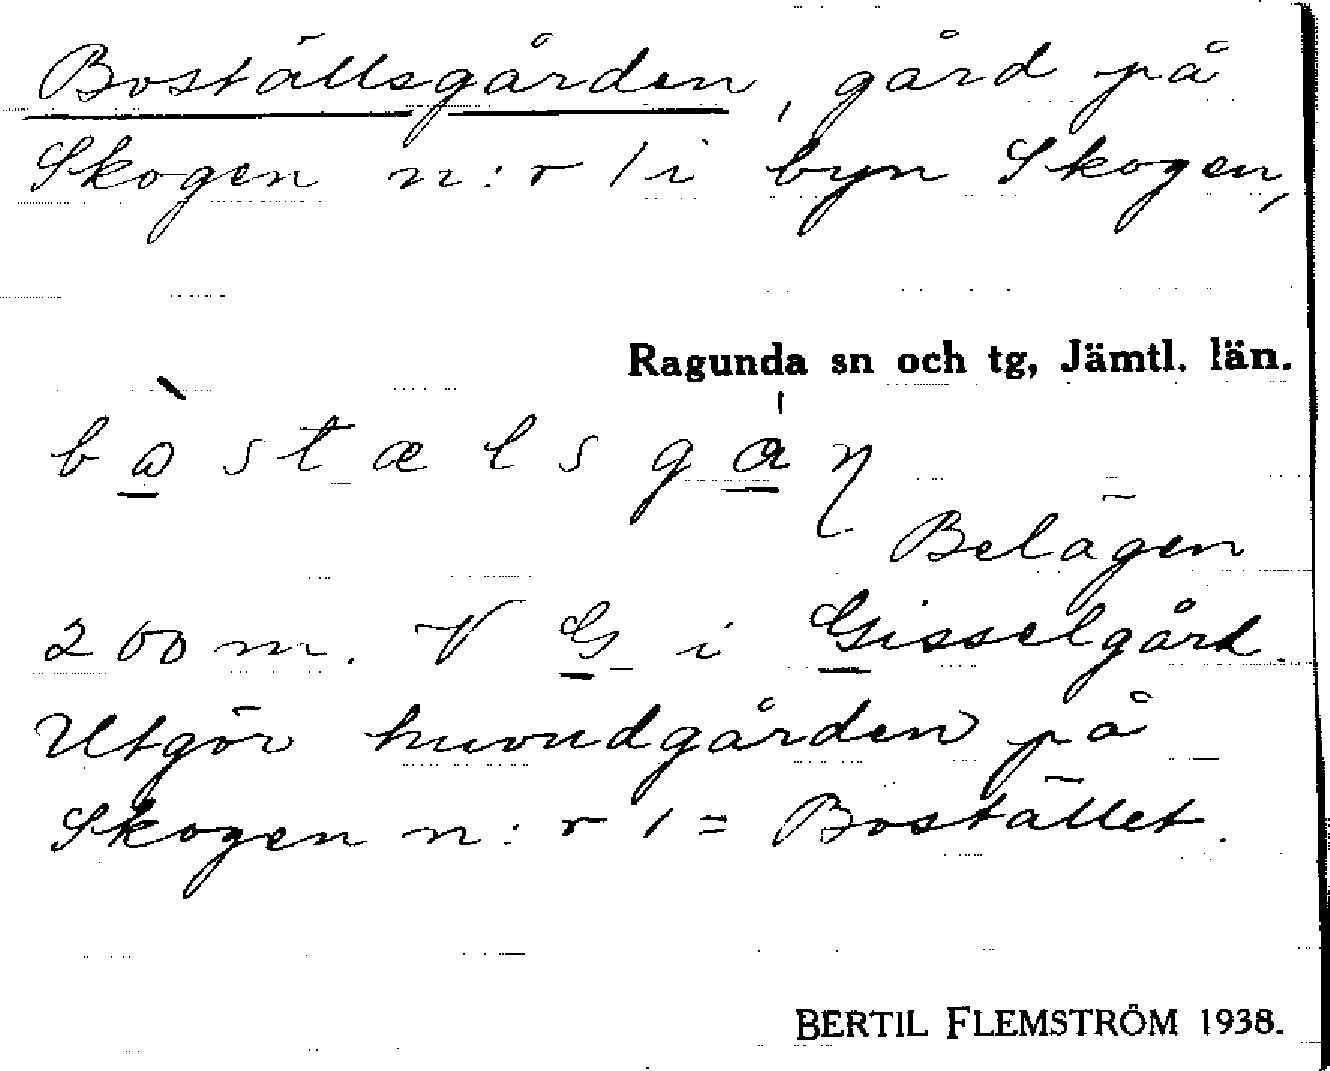 Boställsgården, gård på
Skogen n:r 1 i byn Skogen,
Ragunda sn och tg, Jämtl. län.
Belägen
200 m. V G i Gisselgård.
Utgör huvudgården på
Skogen n:r 1 = Bostället.
BERTIL FLEMSTRÖM 1938.